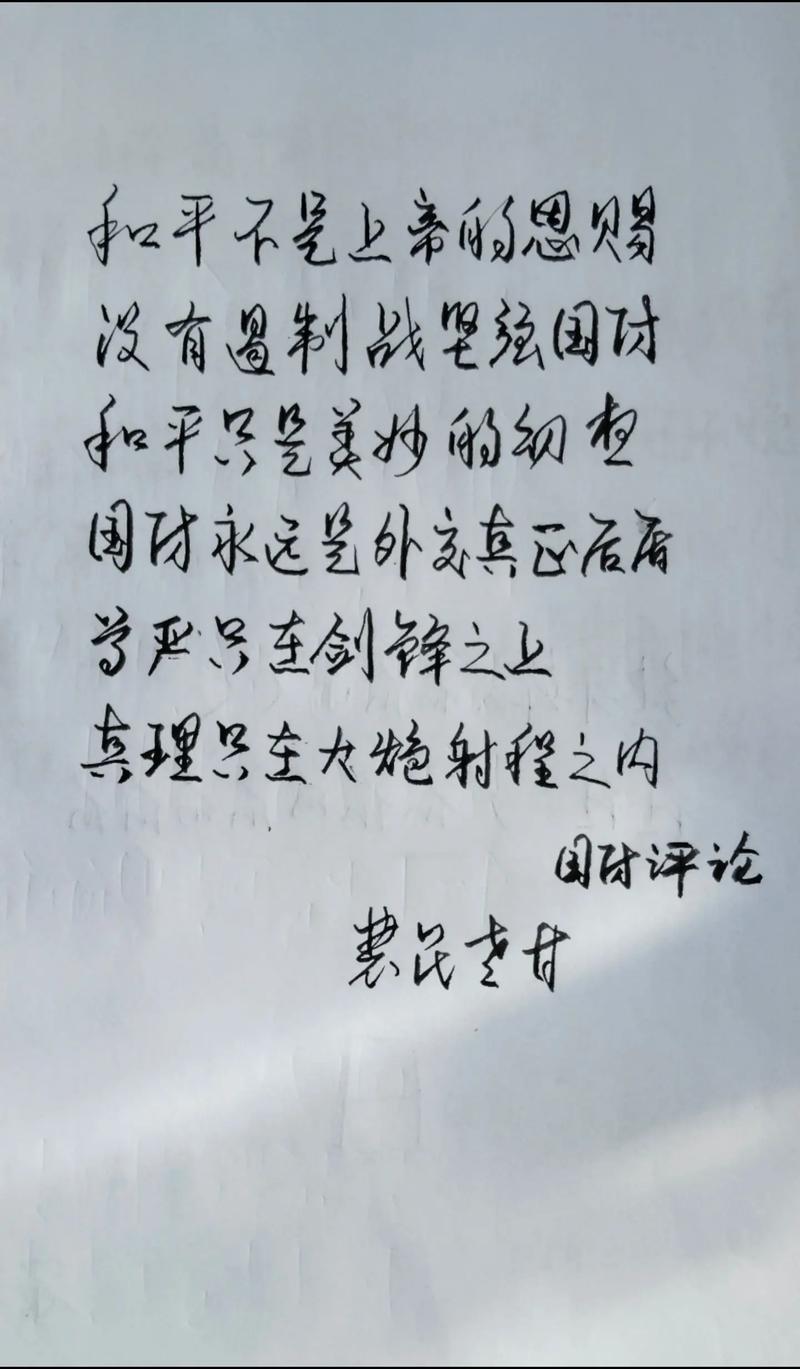 和平不是上帝的恩赐
没有遏制战坚强国防
和平只是美妙的幻想
国防永远是外交真正后盾
尊严只在剑锋之上
真理只在大炮射程之内
国防评论
农民老甘